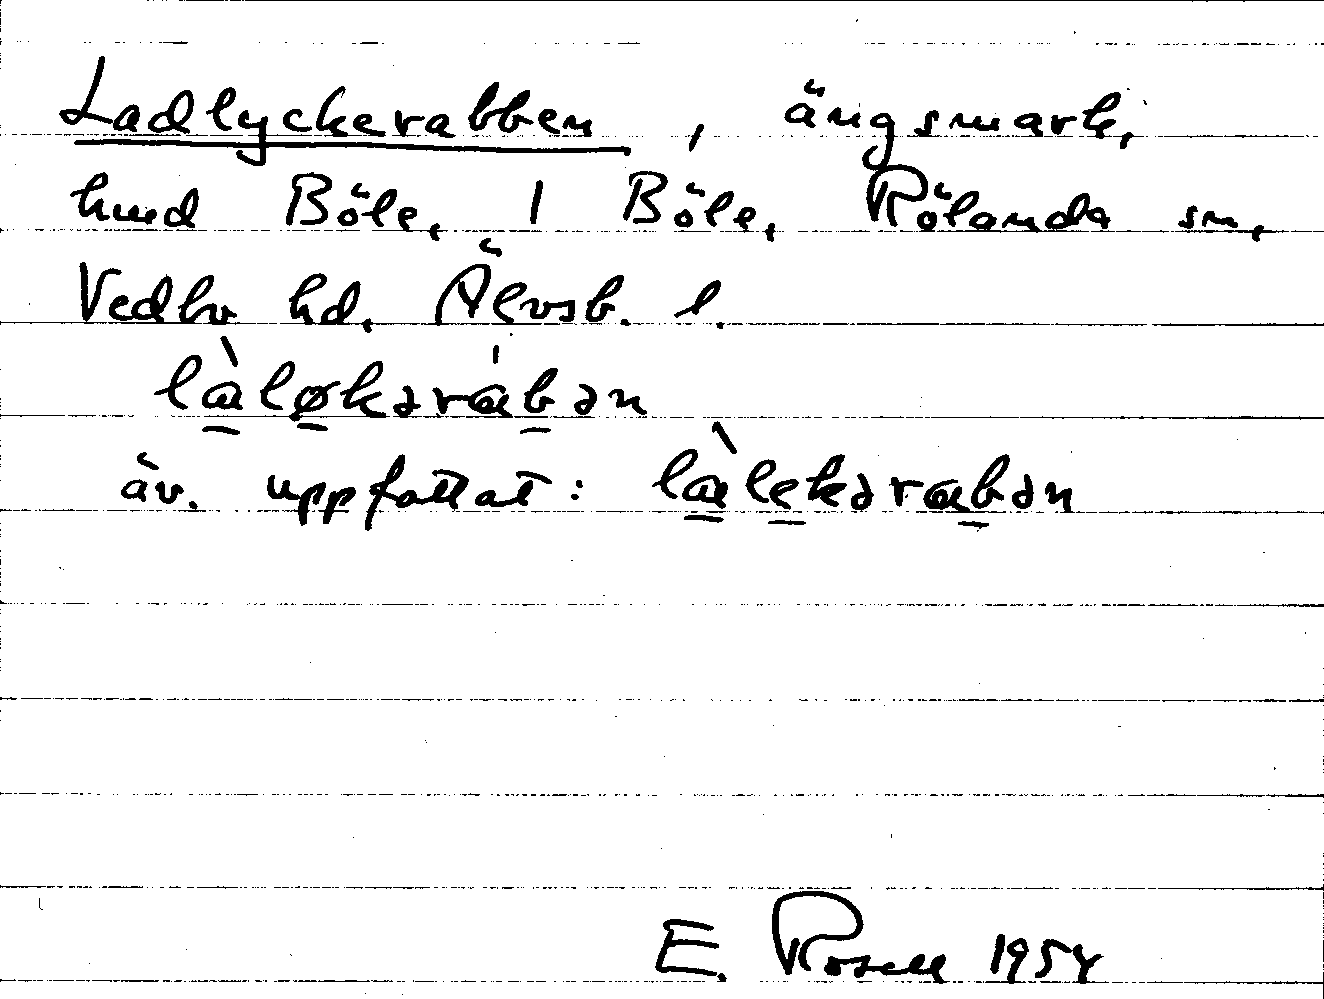 Ladlyckerabben, ängsmark,
hmd Böle, 1 Böle, Rölanda sn,
Vedbo hd, Älvsb. l.
là̠lø̠kərábə̠n
äv. uppfattat: là̠le̠kərab̠ən
E. Rosell 1954